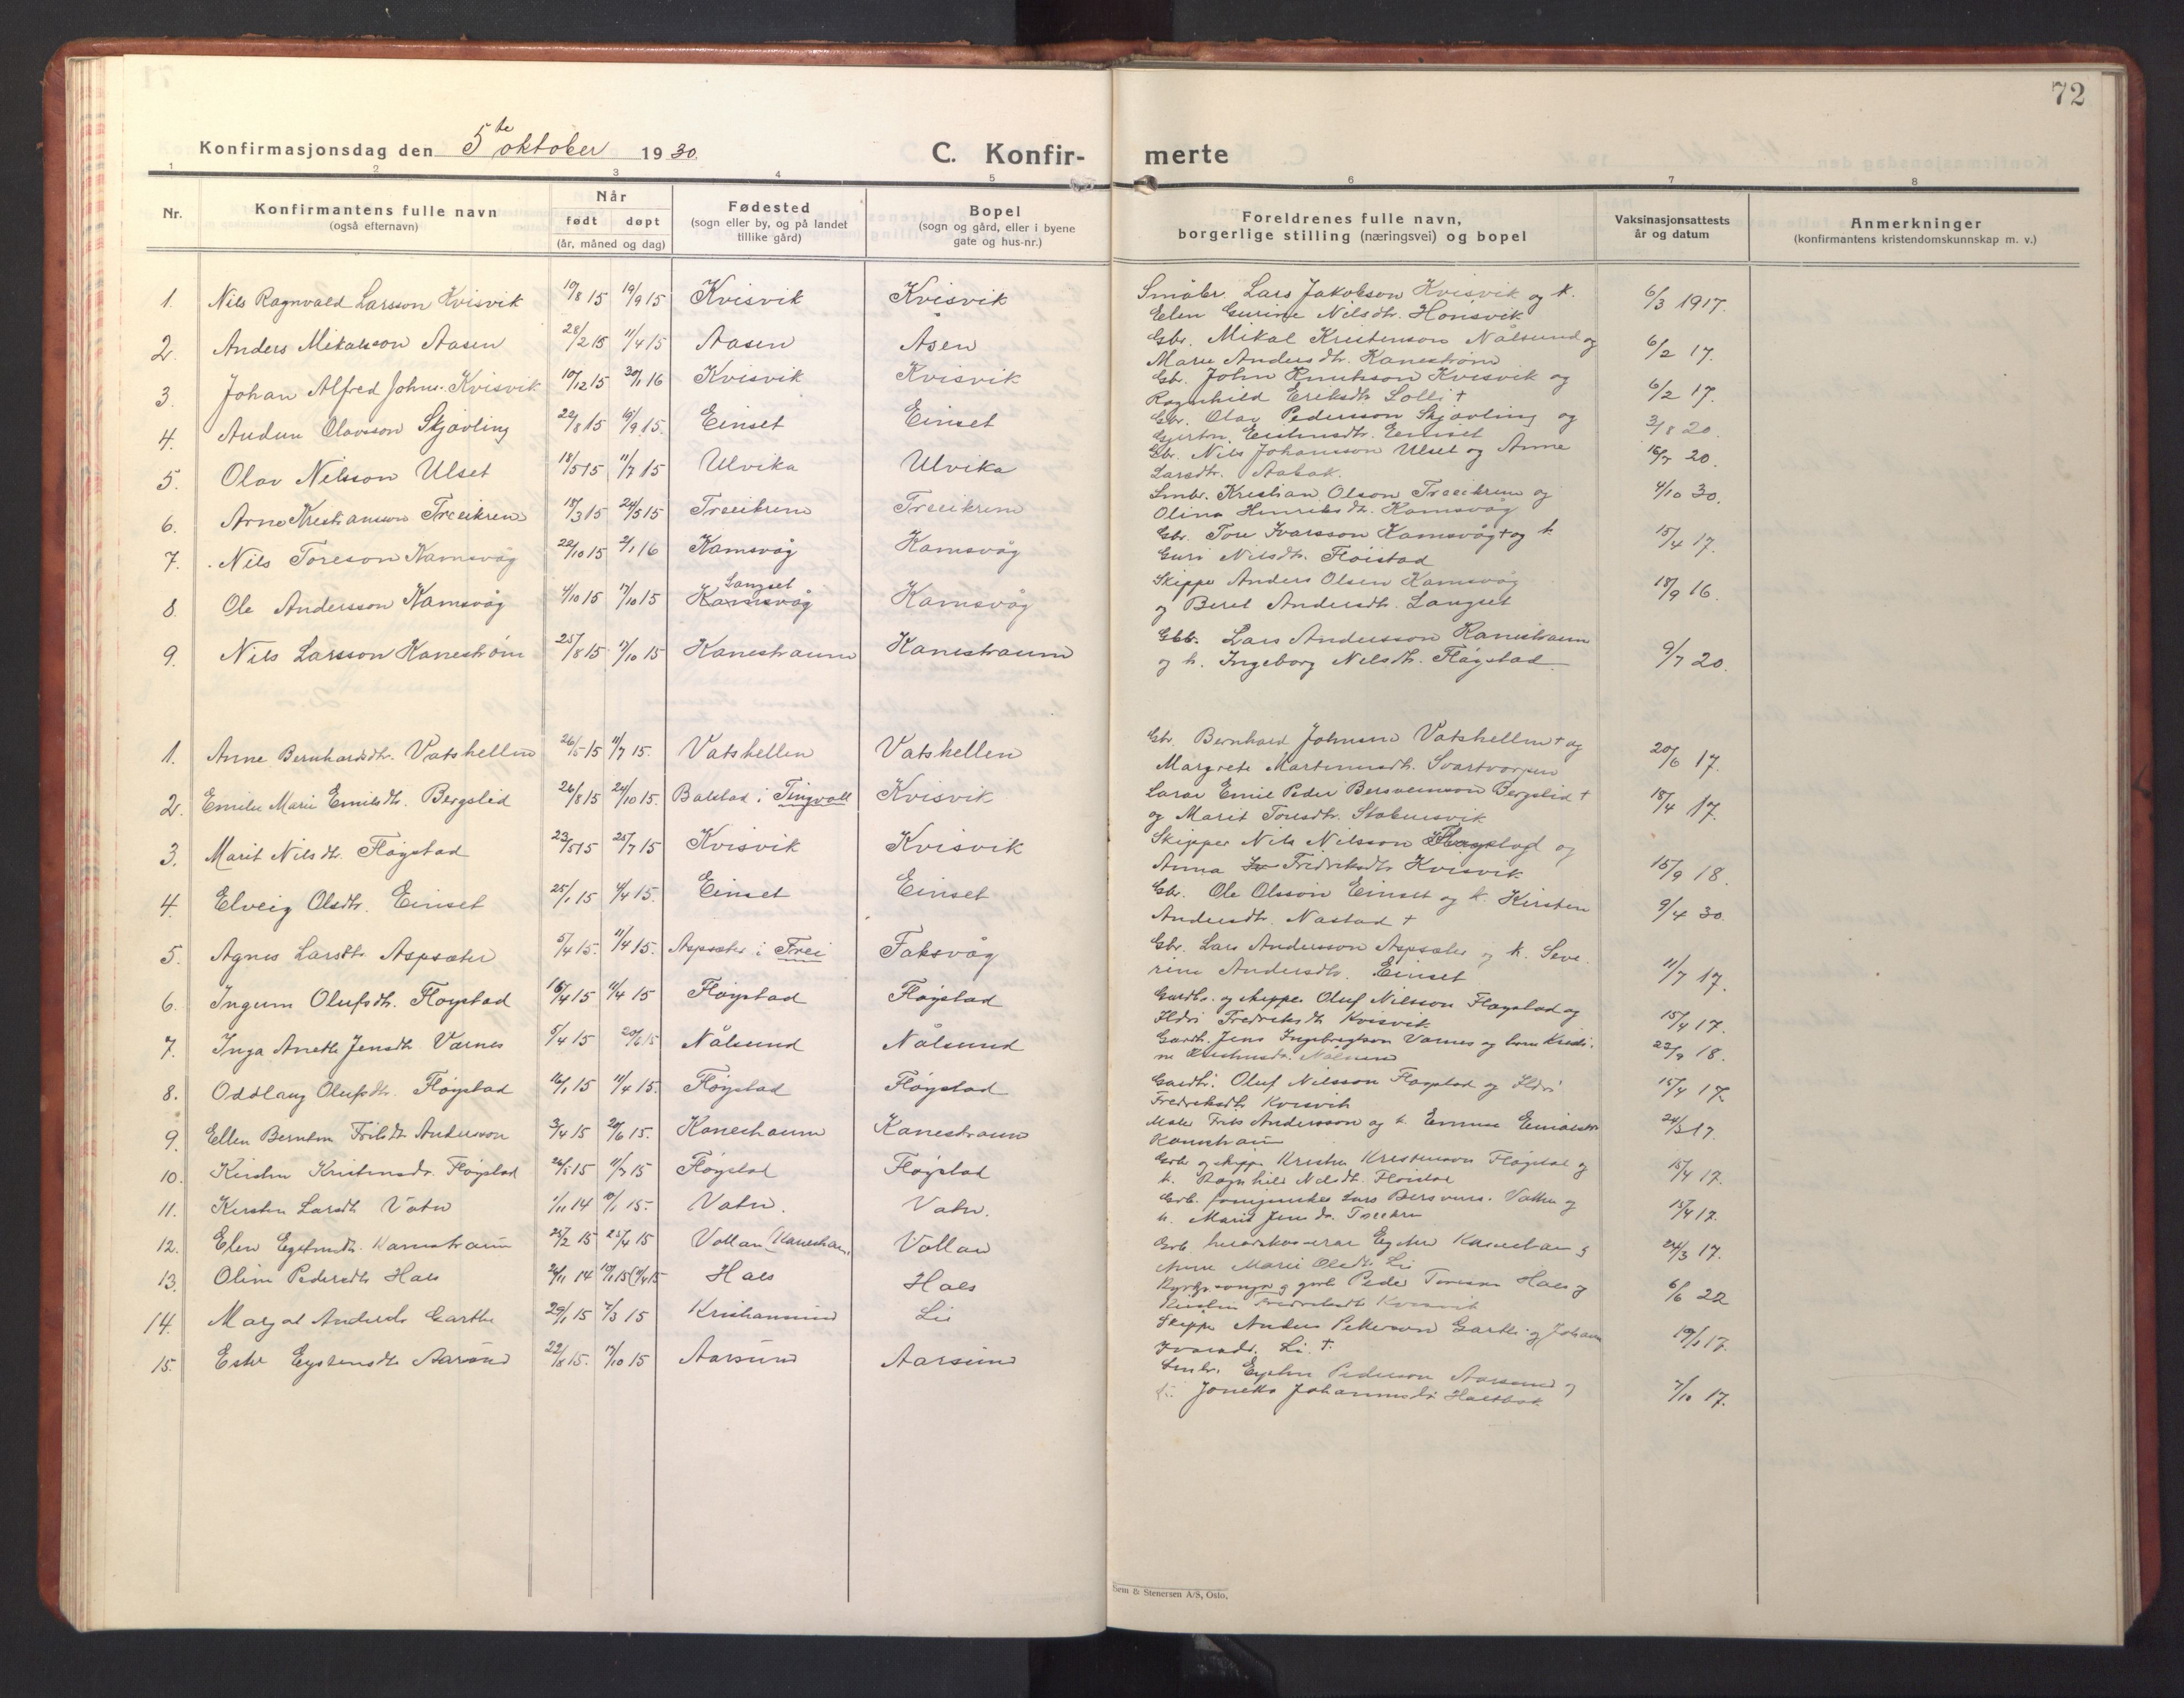 72
Konfirmasjonsdag den 5te oktober 1930.
C. Konfir-
merte
1 2 3 4 5 6 7 8
Nr.
Konfirmantens fulle navn
(også efternavn)
Når
født døpt
(år, måned og dag)
Fødested
(sogn eller by, og på landet
tillike gård)
Bopel
(sogn og gård, eller i byene
gate og hus-nr.)
Foreldrenes fulle navn,
borgerlige stilling (næringsvei) og bopel
Vaksinasjonsattests
år og datum
Anmerkninger
(konfirmantens kristendomskunnskap m. v.)
1. Nils Ragnvald Larsson Kvisvik 10/8 15 19/9 15 Kvisvik Kvisvik Småbr. Lars Jakobson Kvisvik og k. 6/3 1917.
Elen Gurine Nilsdtr. Honsvik
2. Anders Mikalsson Aasen 28/2 15 11/4 15 Aasen Åsen Gbr. Mikal Kristenson Nålsund og 6/2 17.
Marie Andersdtr. Kanestrøm
3. Johan Alfred Johns. Kvisvik 10/12 15 30/1 16 Kvisvik Kvisvik Gbr. John Knutsson Kvisvik og 6/2 17.
Ragnhild Eriksdtr. Solli †
4. Audun Olavsson Skjøvling 22/8 15 19/9 15. Einset Einset Gbr. Olav Pedersson Skjøvling og 3/8 20.
Einset
5. Olav Nilsson Ulset 18/5 15 11/7 15 Ulvika Ulvika Gbr. Nils Johansson Ulset og Anne 16/7 20.
Larsdtr. Aabak.
6. Arne Kristiansson Treeikrem 18/3 15 24/5 15 Treeikrem Treeikrem Smbr. Kristian Olson Treeikrem og 4/10 30.
Olina Henriksdtr. Kamsvåg
7. Nils Toreson Kamsvåg 22/10 15 2/1 16 Kamsvåg Kamsvåg Gbr. Tore Ivarsson Kamsvåg † og k. 15/4 17.
Guri Nilsdtr. Fløistad
8. Ole Andersson Kamsvåg 4/10 15 17/10 15 Langset Kamsvåg Kamsvåg Skipper Anders Olsen Kamsvåg 18/9 16.
og Beret Andersdtr. Langset
9. Nils Larsson Kanestrøm 25/8 15 17/10 15 Kanestraum Kanestraum Gbr. Lars Andersson Kanestraum 9/7 20.
og k. Ingeborg Nilsdtr. Fløystad
1. Anne Bernhardsdtr. Vatshellen 26/5 15 11/7 15. Vatshellen Vatshellen Gbr. Bernhard Johnsen Vatshellen † og 20/6 17.
Margrete Martinusdtr. Svartvorpen
2. Emilie Marie Emilsdtr. Bergslid 26/8 15 24/10 15. Balstad i Tingvoll Kvisvik Lærar Emil Peder Bersveinson Bergslid † 15/4 17.
og Marit Toresdtr. Stobensvik
3. Marit Nilsdtr. Fløystad 23/5 15 25/7 15 Kvisvik Kvisvik Skipper Nils Nilsson Fløystad og 15/9 18.
Anna Fredriksdtr. Kvisvik
4. Elveig Olsdtr. Einset 25/1 15 4/4 15. Einset Einset Gbr. Ole Olsson Einset og k. Kirsten 9/4 30.
Andersdtr. Nastad †
5. Agnes Larsdtr. Aspsæter 5/4 15. 11/4 15. Aspsæter i Frei Faksvåg Gbr. Lars Andersson Aspsæter og k. Seve- 11/7 17.
rine Andersdtr. Einset
6. Ingunn Olufsdtr. Fløystad 16/4 15 11/4 15 Fløystad Fløystad Gardbr. og skipper Oluf Nilsson Fløystad og 15/4 17.
Ildri Fredriksdtr. Kvisvik
7. Inga Anette Jensdtr. Varnes 5/4 15 20/6 15 Nålsund Nålsund Gardbr. Jens Ingebrigtson Varnes og kona Kristi- 23/9 18.
ne Nålsund
8. Oddlaug Olufsdtr. Fløystad 16/1 15 11/4 15. Fløystad Fløystad Gardbr. Oluf Nilsson Fløystad og Ildri 15/4 17.
Fredriksdtr. Kvisvik
9. Ellen Frilsdtr. Andersson 3/4 15 20/6 15. Kanestraum Kanestraum Maler Andersson og k. Emma 24/3 17.
Kanestraum
10. Kirsten Kristensdr. Fløystad 26/5 15 11/7 15 Fløystad Fløystad Grb. og skipp. Kristen Kristenson Fløystad og 15/4 17.
k. Ragnhild Nilsdtr. Fløistad
11. Kirsten Larsdtr. Vatn 1/11 14 10/1 15. Vatn. Vatn. Grb. Lars Vatn og 15/4 17.
k. Marit Jensdr. Treekrem
12. Elen Kanestraum 25/2 15 25/4 15 Vollan (Kanestraum) Vollan Grb. Kanestraum og 24/3 17.
Anne Marie Olsdtr. Li
13. Oline Pedersdtr. Hals 26/11 14 Hals Hals og gardb. Peder Hals og 6/6 22
Kirsten Fredriksdtr. Kvisvik
14. Margot Andersdr. Garthe 29/1 15 7/3 15 Kristiansund Li Skipper Anders Petterson Garthe og Johanna 19/1 17.
Ivarsdr. Li. †
15. Ester Eystensdtr. Aarsund 22/8 15. 17/10 15 Aarsund Aarsund Smbr. Eysten Pederson Aarsund og 7/10 17.
k. Jonetta Johannesdtr.
Sem & Stenersen A/S, Oslo.